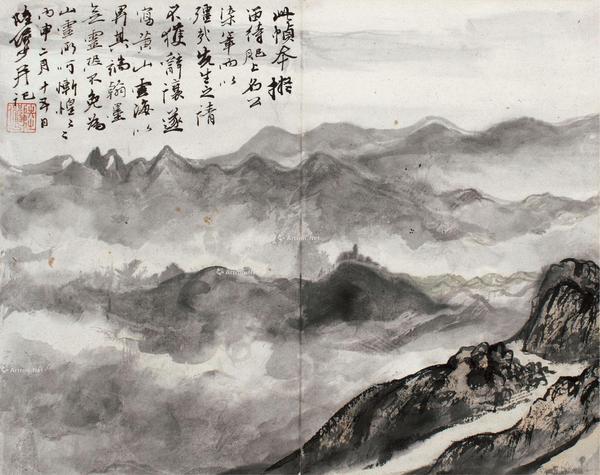 此幀本擬
留待肥上名公
染筆而以
彊哉先生之情
不獲辭讓遂
寫黃山雲海以
畀其端翰墨
無靈恐不免為
山靈所呵慚惶之之
丙申二月十五日
陸儼少并記
Artron.Net
Artron.Net
Artron.Net